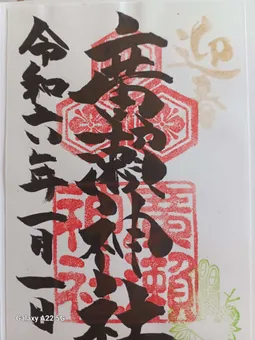 迎春
廣瀬神社
令和六年一月一日
廣瀬
神社
Galaxy A22 5G